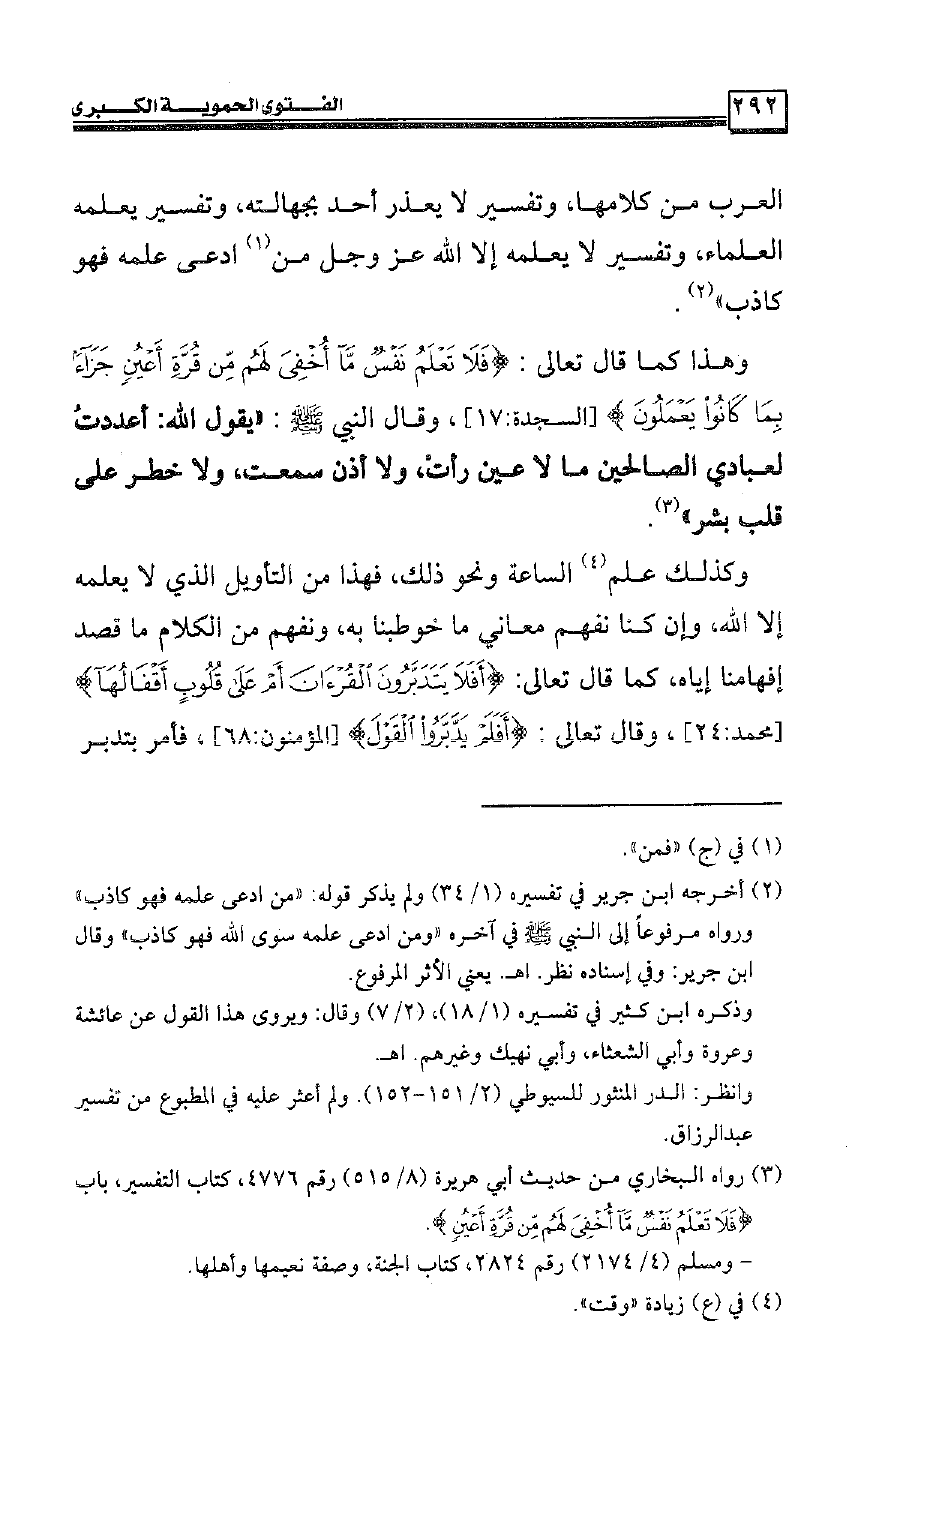 ٢٩٢ الفتوى الحموية الكبرى
العرب من كلامها، وتفسير لا يعذر أحد بجهالته، وتفسير يعلمه
العلماء، وتفسير لا يعلمه إلا الله عز وجل من(١) ادعى علمه فهو
كاذب»(٢).
وهذا كما قال تعالى : ﴿فَلَا تَعْلَمُ نَفْسٌ مَّآ أُخْفِىَ لَهُم مِّن قُرَّةِ أَعْيُنٍ جَزَآءً
بِمَا كَانُوا۟ يَعْمَلُونَ﴾ [السجدة:١٧]، وقال النبي ﷺ : «يقول الله: أعددتُ
لعبادي الصالحين ما لا عين رأتْ، ولا أذن سمعت، ولا خطر على
قلب بشر»(٣).
وكذلك علم(٤) الساعة ونحو ذلك، فهذا من التأويل الذي لا يعلمه
إلا الله، وإن كنا نفهم معاني ما خوطبنا به، ونفهم من الكلام ما قصد
إفهامنا إياه، كما قال تعالى: ﴿أَفَلَا يَتَدَبَّرُونَ ٱلْقُرْءَانَ أَمْ عَلَىٰ قُلُوبٍ أَقْفَالُهَآ﴾
[محمد:٢٤]، وقال تعالى : ﴿أَفَلَمْ يَدَّبَّرُوا۟ ٱلْقَوْلَ﴾ [المؤمنون:٦٨]، فأمر بتدبر
(١) في (ج) «فمن».
(٢) أخرجه ابن جرير في تفسيره (١/ ٣٤) ولم يذكر قوله: «من ادعى علمه فهو كاذب»
ورواه مرفوعاً إلى النبي ﷺ في آخره «ومن ادعى علمه سوى الله فهو كاذب» وقال
ابن جرير: وفي إسناده نظر. اهـ. يعني الأثر المرفوع.
وذكره ابن كثير في تفسيره (١/ ١٨)، (٢/ ٧) وقال: ويروى هذا القول عن عائشة
وعروة وأبي الشعثاء، وأبي نهيك وغيرهم. اهـ.
وانظر: الدر المنثور للسيوطي (٢/ ١٥١-١٥٢). ولم أعثر عليه في المطبوع من تفسير
عبدالرزاق.
(٣) رواه البخاري من حديث أبي هريرة (٨/ ٥١٥) رقم ٤٧٧٦، كتاب التفسير، باب
﴿فَلَا تَعْلَمُ نَفْسٌ مَّآ أُخْفِىَ لَهُم مِّن قُرَّةِ أَعْيُنٍ﴾.
- ومسلم (٤/ ٢١٧٤) رقم ٢٨٢٤، كتاب الجنة، وصفة نعيمها وأهلها.
(٤) في (ع) زيادة «وقت».